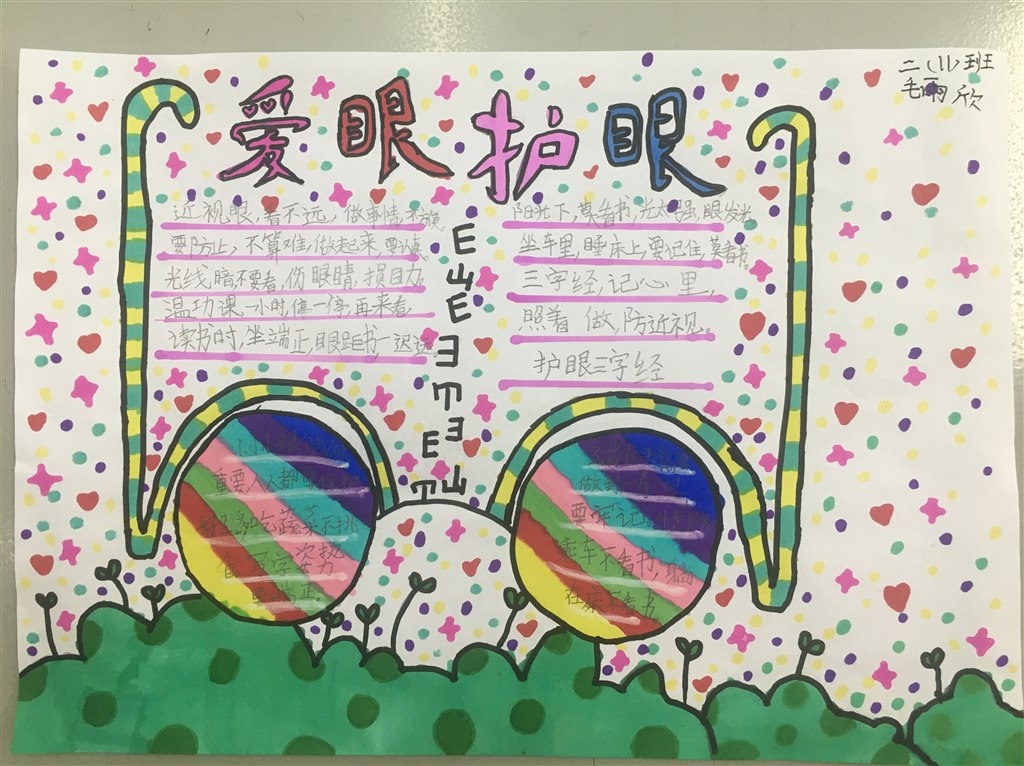 二（11）班
毛雨欣
爱眼护眼
近视眼，看不远，做事情，不方便。
要防止，不算难，做起来，要
光线暗不要看，伤眼睛，损目力。
温功课一小时，停一停，再来看
读书时，坐端正，眼距书，一迟远。
阳光下，莫看书，光太强，眼发光
坐车里，睡床上，要记住，莫看书。
三字经，记心里，
照着做，防近视。
护眼三字经
E E E E E E E E E
重要人人都
多吃蔬菜不挑
写字姿势
要 正
做到
要牢记。
乘车不看书，躺
在床不看书